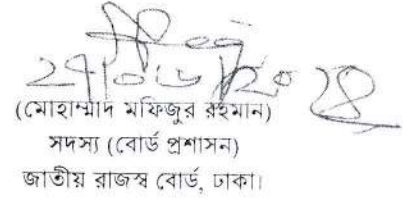 (মোহাম্মাদ মফিজুর রহমান)
সদস্য (বোর্ড প্রশাসন)
জাতীয় রাজস্ব বোর্ড, ঢাকা।